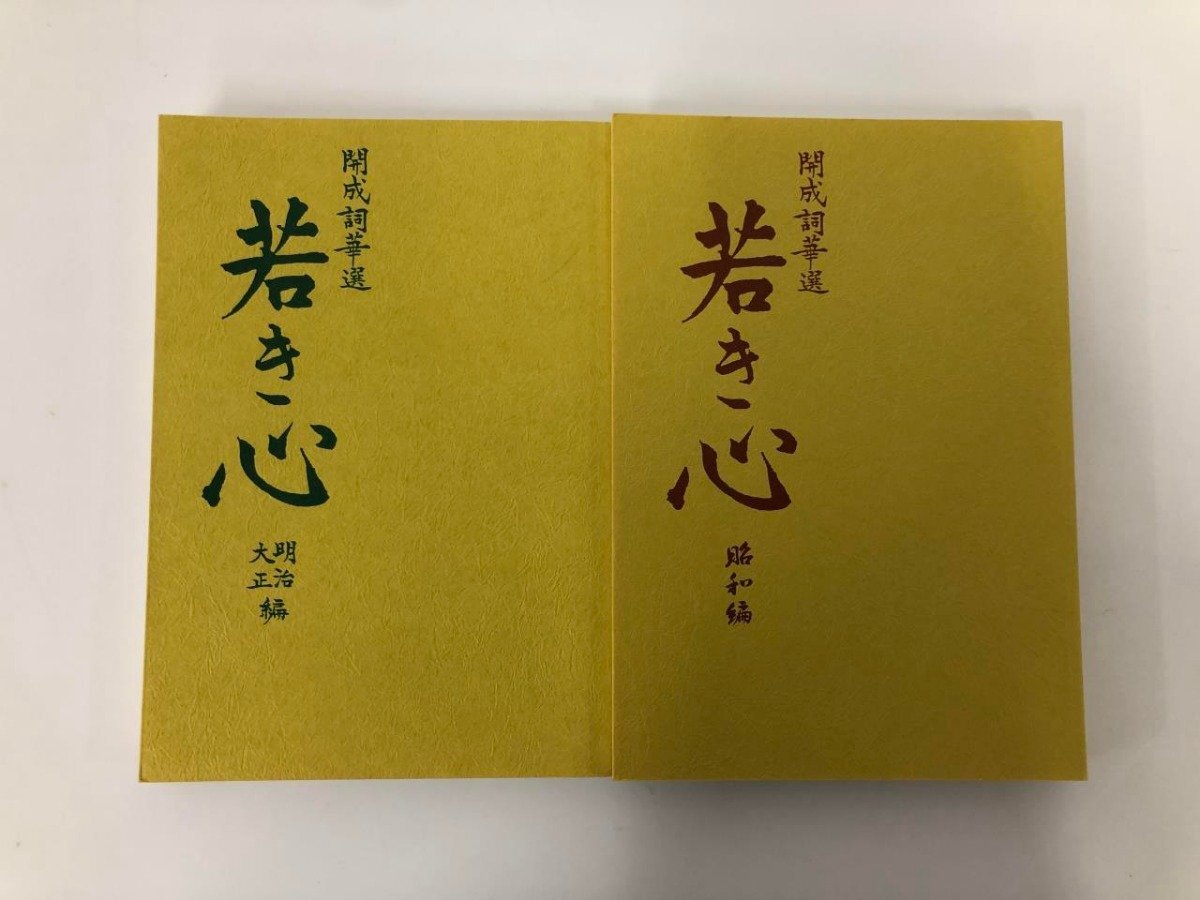 開成詞華選
若き心
明治
大正
編
開成詞華選
若き心
昭和編